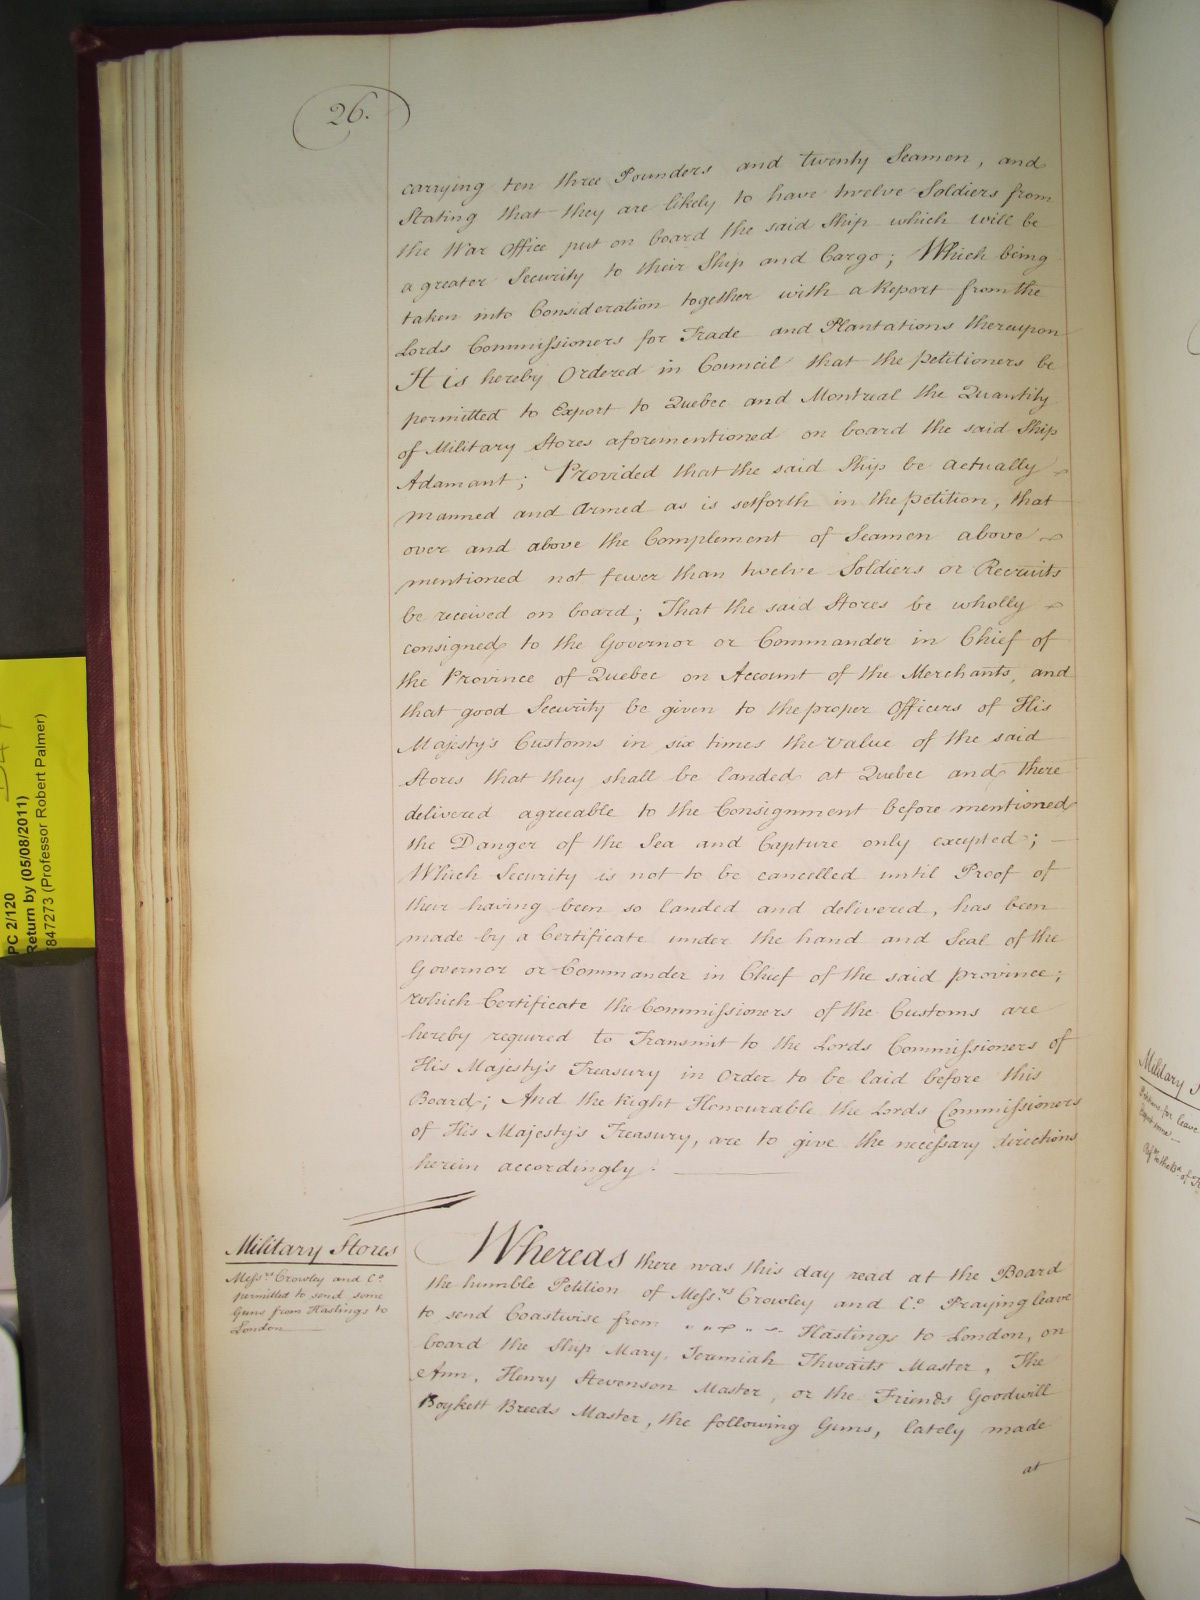 26.
carrying ten three Pounders and twenty Seamen, and
Stating that they are likely to have twelve Soldiers from
the War Office put on board the said Ship which will be
a greater Security to their Ship and Cargo; Which being
taken into Consideration together with a Report from the
Lords Commissioners for Trade and Plantations thereupon
It is hereby Ordered in Council that the petitioners be
permitted to Export to Quebec and Montreal the Quantity
of Military Stores aforementioned on board the said Ship
Adamant; Provided that the said Ship be actually
manned and Armed as is setforth in the petition, that
over and above the Complement of Seamen above
mentioned not fewer than twelve Soldiers or Recruits
be received on board; That the said Stores be wholly
consigned to the Governor or Commander in Chief of
the Province of Quebec on Account of the Merchants, and
that good Security be given to the proper Officers of His
Majesty's Customs in six times the value of the said
Stores that they shall be landed at Quebec and there
delivered agreeable to the Consignment before mentioned
the Danger of the Sea and Capture only excepted;
Which Security is not to be cancelled until Proof of
their having been so landed and delivered, has been
made by a Certificate under the hand and Seal of the
Governor or Commander in Chief of the said province;
which Certificate the Commissioners of the Customs are
hereby required to Transmit to the Lords Commissioners of
His Majesty's Treasury in Order to be laid before this
Board; And the Right Honourable the Lords Commissioners
of His Majesty's Treasury, are to give the necessary directions
herein accordingly.
Military Stores
Messrs. Crowley and Co.
permitted to send some
Guns from Hastings to
London
Whereas there was this day read at the Board
the humble Petition of Messrs. Crowley and Co. Praying leave
to send Coastwise from Hastings to London, on
board the Ship Mary, Jeremiah Thwaits Master, The
Ann, Henry Stevenson Master, or the Friends Goodwill
Boykett Breeds Master, the following Guns, lately made
at
PC 2/120
Return by (05/08/2011)
847273 (Professor Robert Palmer)
Military S
for leave